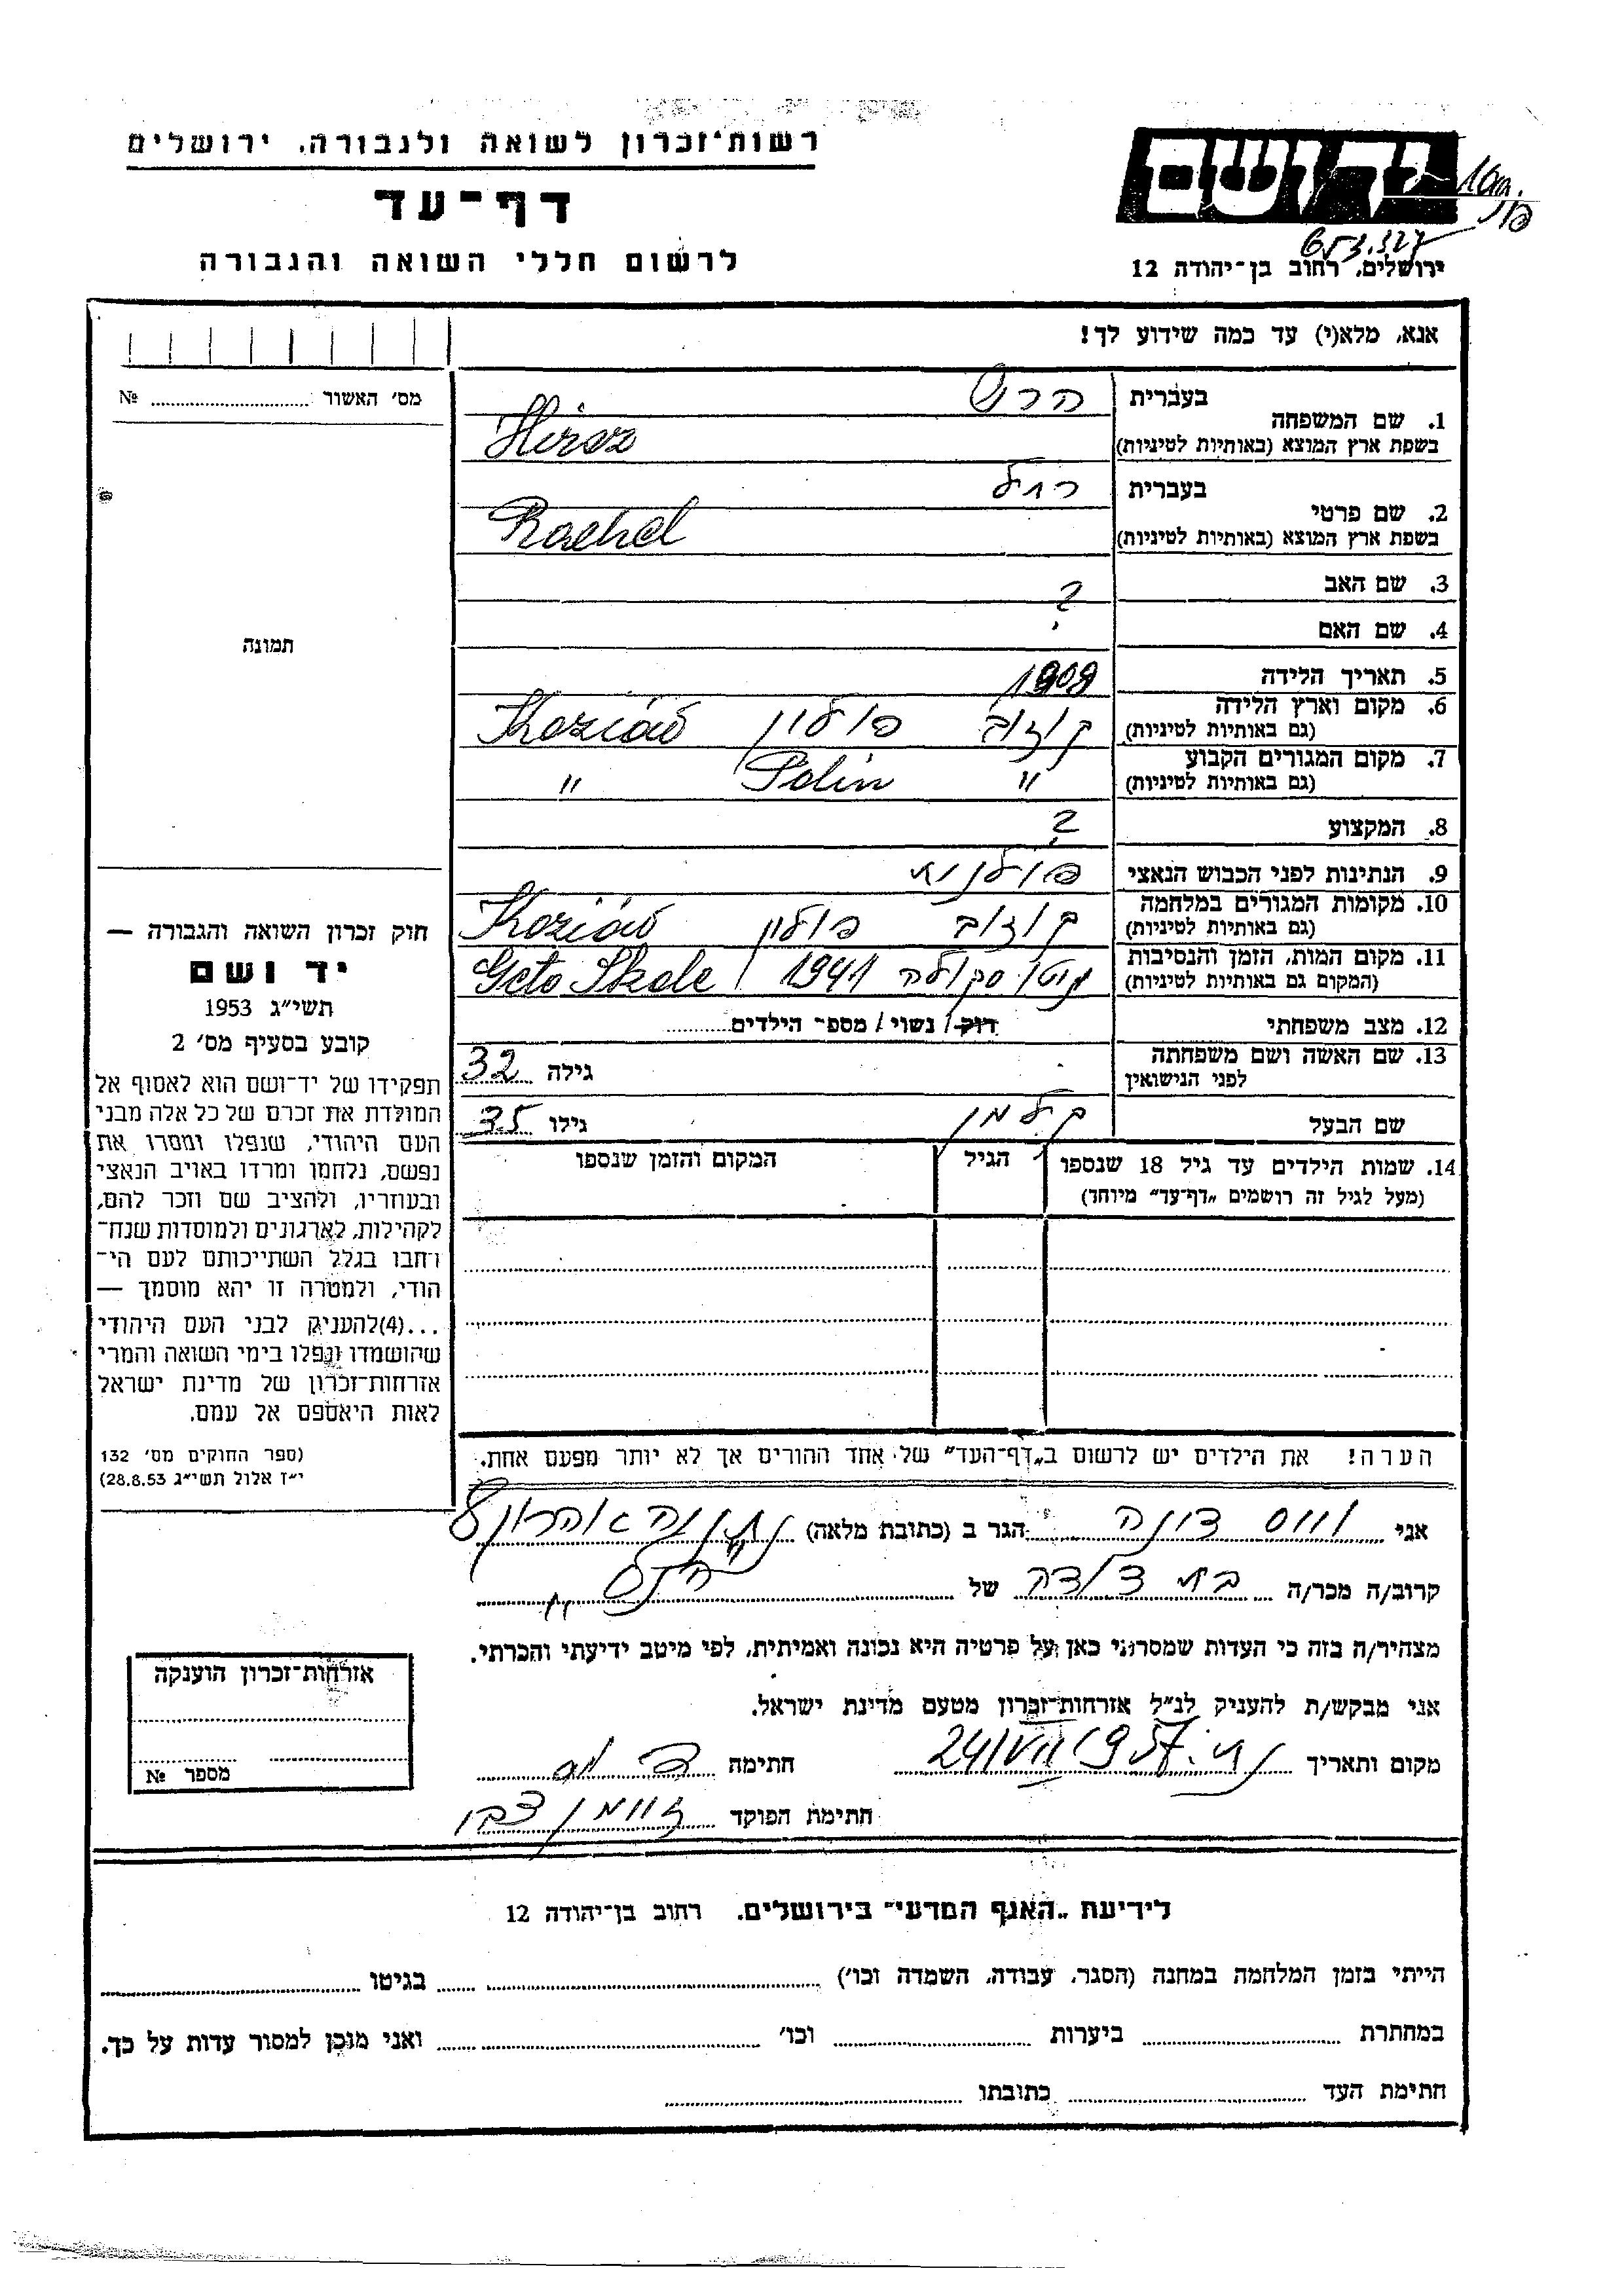 רשות־זכרון לשואה ולגבורה, ירושלים
דף־עד
לרשום חללי השואה והגבורה
יד ושם
653.327
ירושלים, רחוב בן־יהודה 12
אנא, מלא(י) עד כמה שידוע לך!
מס׳ האשור № 
1. שם המשפחה
בעברית הרש
בשפת ארץ המוצא (באותיות לטיניות) Hirsz
2. שם פרטי
בעברית רחל
בשפת ארץ המוצא (באותיות לטיניות) Rachel
3. שם האב ?
4. שם האם
תמונה
5. תאריך הלידה 1909
6. מקום וארץ הלידה (גם באותיות לטיניות) קוזוב פולין Koziów
7. מקום המגורים הקבוע (גם באותיות לטיניות) " Polin "
8. המקצוע ?
9. הנתינות לפני הכבוש הנאצי פולנית
10. מקומות המגורים במלחמה (גם באותיות לטיניות) קוזוב פולין Koziów
11. מקום המות, הזמן והנסיבות (המקום גם באותיות לטיניות) גיטו סקולה 1941 Geto Skole
12. מצב משפחתי רוק / נשוי / מספר הילדים
13. שם האשה ושם משפחתה לפני הנישואין גילה 32
שם הבעל קלמן גילו 35
14. שמות הילדים עד גיל 18 שנספו הגיל המקום והזמן שנספו
(מעל לגיל זה רושמים „דף־עד” מיוחד)
חוק זכרון השואה והגבורה —
יד ושם
תשי״ג 1953
קובע בסעיף מס׳ 2
תפקידו של יד־ושם הוא לאסוף אל
המולדת את זכרם של כל אלה מבני
העם היהודי, שנפלו ומסרו את
נפשם, נלחמו ומרדו באויב הנאצי
ובעוזריו, ולהציב שם וזכר להם,
לקהילות, לארגונים ולמוסדות שנח־
רבו בגלל השתייכותם לעם הי־
הודי, ולמטרה זו יהא מוסמך —
...(4)להעניק לבני העם היהודי
שהושמדו ונפלו בימי השואה והמרי
אזרחות־זכרון של מדינת ישראל
לאות היאספם אל עמם.
(ספר החוקים מס׳ 132
י״ז אלול תשי״ג 28.8.53)
הערה! את הילדים יש לרשום ב„דף־העד” של אחד ההורים אך לא יותר מפעם אחת.
אני ווייס דונה הגר ב (כתובת מלאה)
קרוב/ה מכר/ה בת דודה של
מצהיר/ה בזה כי העדות שמסרתי כאן על פרטיה היא נכונה ואמיתית, לפי מיטב ידיעתי והכרתי.
אני מבקש/ת להעניק לנ״ל אזרחות־זכרון מטעם מדינת ישראל.
מקום ותאריך 24/VII 1957 חתימה
חתימת הפוקד
אזרחות־זכרון הוענקה
מספר №
לידיעת „האגף המדעי” בירושלים, רחוב בן־יהודה 12
הייתי בזמן המלחמה במחנה (הסגר, עבודה, השמדה וכו׳) בגיטו
במחתרת ביערות וכו׳ ואני מוכן למסור עדות על כך.
חתימת העד כתובתו